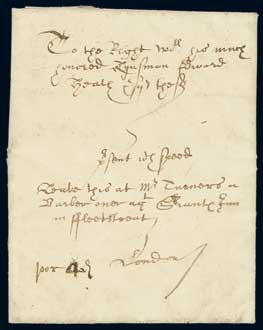 To the Right Wll his much
honored Kynsman Edward
Heath Esqr these
psent wth speed
Leave this at Mr Turners a
Barber over agt Graies Inn
in ffleetstreet
por 4d London